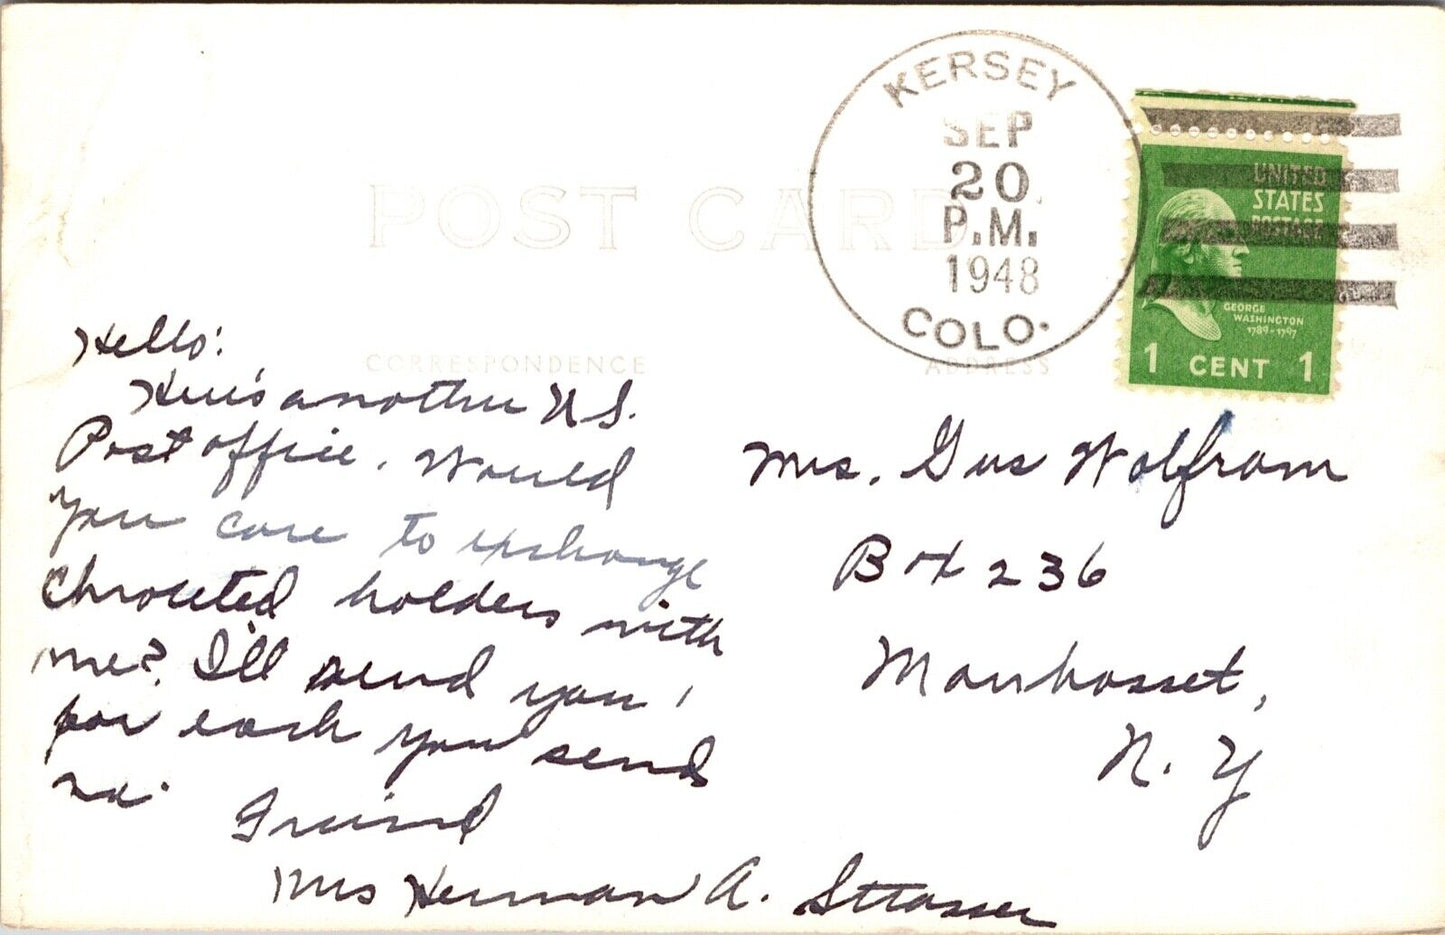 KERSEY
SEP
20
P.M.
1948
COLO.
UNITED
STATES
POSTAGE
GEORGE
WASHINGTON
1789-1797
1 CENT 1
POST CARD
CORRESPONDENCE
ADDRESS
Hello!
Here's another U.S.
Post office. Would
you care to exchange
with
me? I'll send you 1
for each you send
me.
Friend
Mrs Herman A. Strasser
Mrs. Gus Wolfram
Box 236
Manhasset,
N. Y